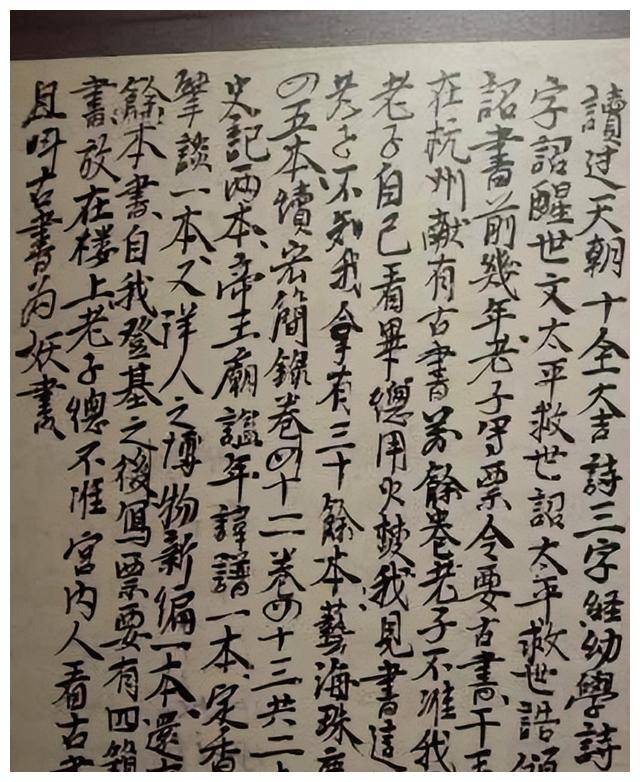 讀过天朝十全大吉詩三字経幼學詩
字詔醒世文太平救世詔太平救世誥頒
詔書前幾年老子寫票令要古書干王
在杭州献有古書萬餘卷老子不准我
老子自己看畢總用火焚我見書這
老子不知我拿有三十餘本藝海珠
四五本續宏簡錄卷四十二卷四十三共二
史記兩本帝王廟謚年諱譜一本定香
筆談一本又洋人之博物新編一本還
餘本書自我登基之後寫票要有四箱
書放在楼上老子總不准宮内人看古
且叫古書为妖書